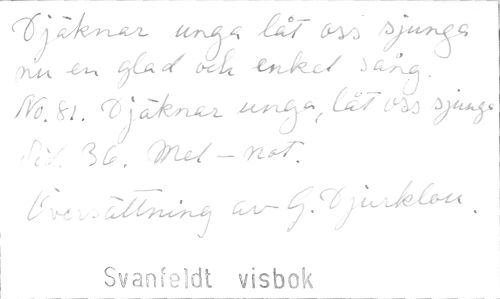 Djäknar unga låt oss sjunga
nu en glad och enkel sång.
No. 81. Djäknar unga, låt oss sjunga
Sid. 36. Mel-not.
Översättning av G. Djurklou.
Svanfeldt visbok